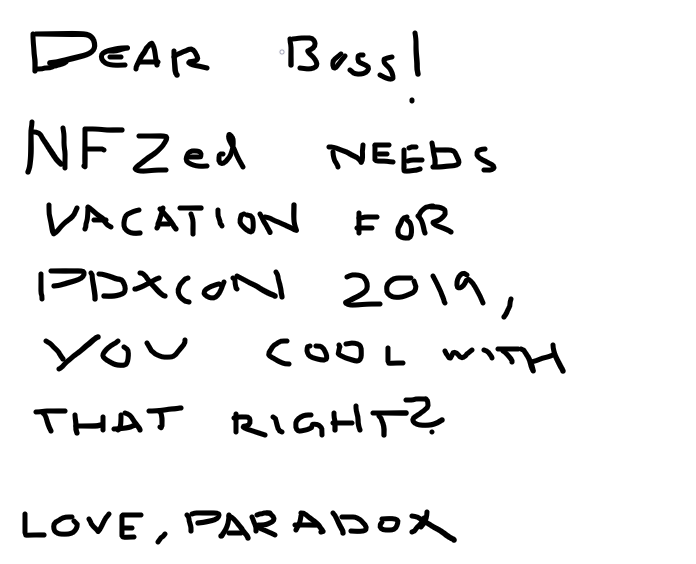 DEAR BOSS!
NFZed NEEDS
VACATION FOR
PDXCON 2019,
YOU COOL WITH
THAT RIGHT?
LOVE, PARADOX